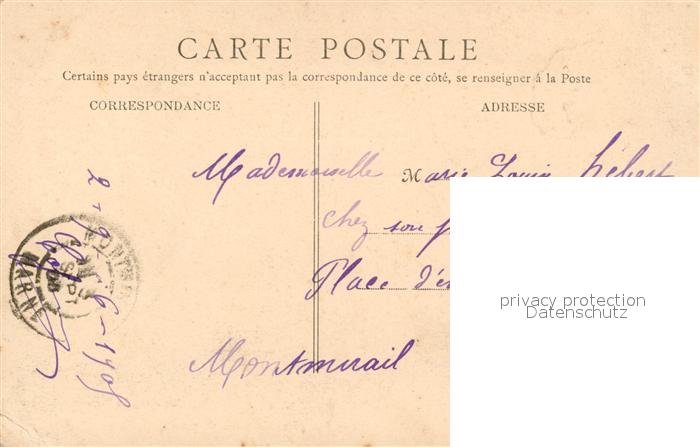 CARTE POSTALE
Certains pays étrangers n'acceptant pas la correspondance de ce côté, se renseigner à la Poste
CORRESPONDANCE
ADRESSE
Mademoiselle Marie Louise Hébert
chez son
Place d'
Montmirail
MARNE
1908
privacy protection
Datenschutz